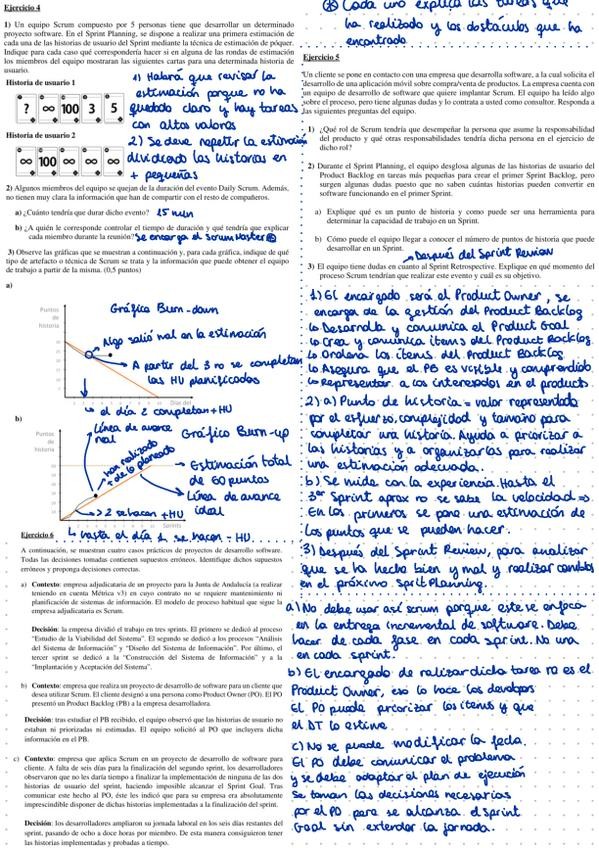 Ejercicio 4
1) Un equipo Scrum compuesto por 5 personas tiene que desarrollar un determinado
proyecto software. En el Sprint Planning, se dispone a realizar una primera estimación de
cada una de las historias de usuario del Sprint mediante la técnica de estimación de póquer.
Indique para cada caso qué correspondería hacer si en alguna de las rondas de estimación
los miembros del equipo mostraran las siguientes cartas para una determinada historia de
usuario.
Historia de usuario 1
? ∞ 100 3 5
1) Habrá que revisar la
estimación porque no ha
quedado claro y hay tareas
con altos valores
Historia de usuario 2
∞ 100 ∞ ∞ ∞
2) Se debe repetir la estimación
dividiendo las historias en
+ pequeñas
2) Algunos miembros del equipo se quejan de la duración del evento Daily Scrum. Además,
no tienen muy clara la información que han de compartir con el resto de compañeros.
a) ¿Cuánto tendría que durar dicho evento? 15 min
b) ¿A quién le corresponde controlar el tiempo de duración y qué tendría que explicar
cada miembro durante la reunión? Se encarga el Scrum Master
3) Observe las gráficas que se muestran a continuación y, para cada gráfica, indique de qué
tipo de artefacto o técnica de Scrum se trata y la información que puede obtener el equipo
de trabajo a partir de la misma. (0,5 puntos)
a)
Puntos
de
historia
Gráfica Burn-down
Algo salió mal en la estimación
A partir del 3 no se completan
las HU planificadas
Días del
el día 2 completan + HU
b)
Puntos
de
historia
Línea de avance
real
Gráfico Burn-up
Han realizado
+ de lo planeado
Estimación total
de 60 puntos
Línea de avance
ideal
> 2 se hacen + HU
Sprints
hasta el día 1 se hacen - HU
Ejercicio 6
A continuación, se muestran cuatro casos prácticos de proyectos de desarrollo software.
Todas las decisiones tomadas contienen supuestos erróneos. Identifique dichos supuestos
erróneos y proponga decisiones correctas.
a) Contexto: empresa adjudicataria de un proyecto para la Junta de Andalucía (a realizar
teniendo en cuenta Métrica v3) en cuyo contrato no se requiere mantenimiento ni
planificación de sistemas de información. El modelo de proceso habitual que sigue la
empresa adjudicataria es Scrum.
Decisión: la empresa dividió el trabajo en tres sprints. El primero se dedicó al proceso
"Estudio de la Viabilidad del Sistema". El segundo se dedicó a los procesos "Análisis
del Sistema de Información" y "Diseño del Sistema de Información". Por último, el
tercer sprint se dedicó a la "Construcción del Sistema de Información" y a la
"Implantación y Aceptación del Sistema".
b) Contexto: empresa que realiza un proyecto de desarrollo de software para un cliente que
desea utilizar Scrum. El cliente designó a una persona como Product Owner (PO). El PO
presentó un Product Backlog (PB) a la empresa desarrolladora.
Decisión: tras estudiar el PB recibido, el equipo observó que las historias de usuario no
estaban ni priorizadas ni estimadas. El equipo solicitó al PO que incluyera dicha
información en el PB.
c) Contexto: empresa que aplica Scrum en un proyecto de desarrollo de software para
cliente. A falta de seis días para la finalización del segundo sprint, los desarrolladores
observaron que no les daría tiempo a finalizar la implementación de ninguna de las dos
historias de usuario del sprint, haciendo imposible alcanzar el Sprint Goal. Tras
comunicar este hecho al PO, éste les indicó que para su empresa era absolutamente
imprescindible disponer de dichas historias implementadas a la finalización del sprint.
Decisión: los desarrolladores ampliaron su jornada laboral en los seis días restantes del
sprint, pasando de ocho a doce horas por miembro. De esta manera consiguieron tener
las historias implementadas y probadas a tiempo.
Cada uno explica las tareas que
ha realizado y los obstáculos que ha
encontrado
Ejercicio 5
Un cliente se pone en contacto con una empresa que desarrolla software, a la cual solicita el
desarrollo de una aplicación móvil sobre compra/venta de productos. La empresa cuenta con
un equipo de desarrollo de software que quiere implantar Scrum. El equipo ha leído algo
sobre el proceso, pero tiene algunas dudas y lo contrata a usted como consultor. Responda a
las siguientes preguntas del equipo.
1) ¿Qué rol de Scrum tendría que desempeñar la persona que asume la responsabilidad
del producto y qué otras responsabilidades tendría dicha persona en el ejercicio de
dicho rol?
2) Durante el Sprint Planning, el equipo desglosa algunas de las historias de usuario del
Product Backlog en tareas más pequeñas para crear el primer Sprint Backlog, pero
surgen algunas dudas puesto que no saben cuántas historias pueden convertir en
software funcionando en el primer Sprint.
a) Explique qué es un punto de historia y como puede ser una herramienta para
determinar la capacidad de trabajo en un Sprint.
b) Cómo puede el equipo llegar a conocer el número de puntos de historia que puede
desarrollar en un Sprint.
Después del Sprint Review
3) El equipo tiene dudas en cuanto al Sprint Retrospective. Explique en qué momento del
proceso Scrum tendrían que realizar este evento y cuál es su objetivo.
1) El encargado será el Product Owner, se
encarga de la gestión del Product Backlog
Desarrolla y comunica el Product Goal
Crea y comunica items del Product Backlog
Ordena los items del Product Backlog
Asegura que el PB es visible y comprendido
Representar a los interesados en el producto
2) a) Punto de historia = valor representado
por el esfuerzo, complejidad y tamaño para
completar una historia. Ayuda a priorizar a
las historias y a organizarlas para realizar
una estimación adecuada.
b) Se mide con la experiencia. Hasta el
3er Sprint aprox no se sabe la velocidad =>
En los primeros se pone una estimación de
los puntos que se pueden hacer.
3) Después del Sprint Review, para analizar
que se ha hecho bien y mal y realizar cambios
en el próximo Sprint Planning.
a) No debe usar así scrum porque este se enfoca
en la entrega incremental de software. Debe
hacer de cada fase en cada sprint. No una
en cada sprint.
b) El encargado de realizar dicha tarea no es el
Product Owner, eso lo hace los developers
El PO puede priorizar los items y que
el DT lo estime
c) No se puede modificar la fecha.
El PO debe comunicar el problema
y se debe adaptar el plan de ejecución
Se toman las decisiones necesarias
por el PO para se alcanza el Sprint
Goal sin extender la jornada.